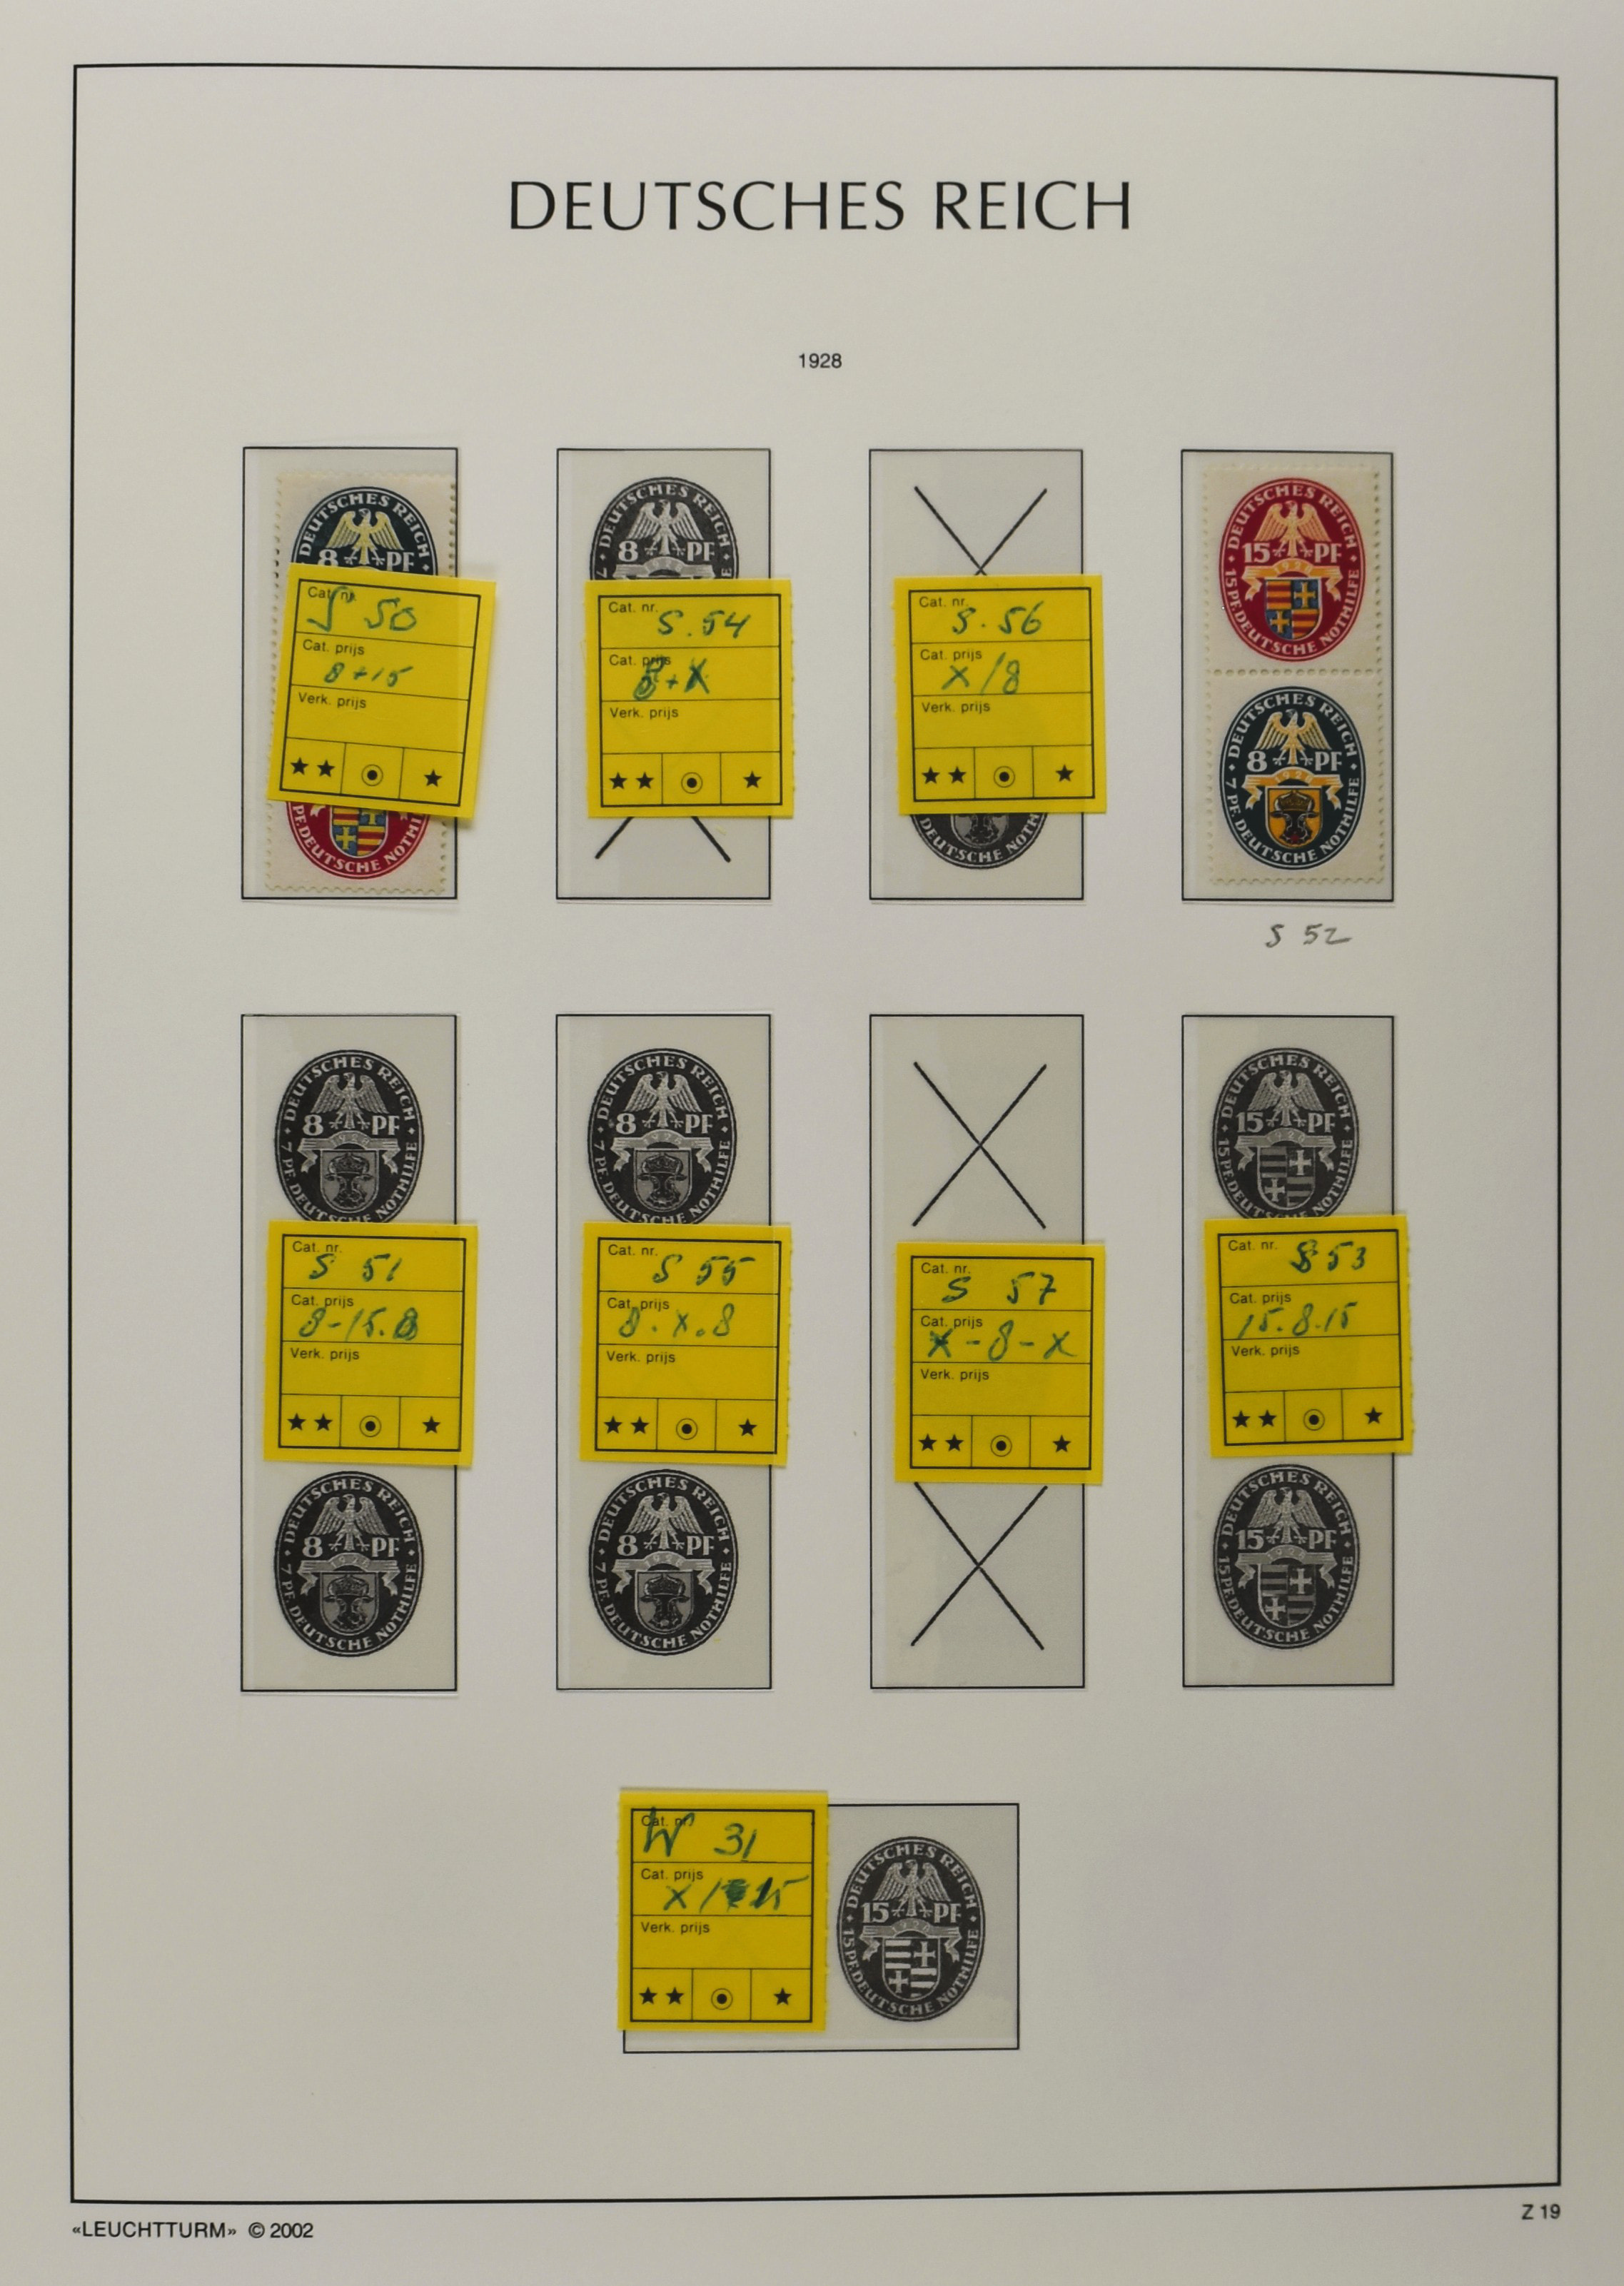 DEUTSCHES REICH
1928
DEUTSCHES REICH
8 PF
Cat. nr.
S 50
Cat. prijs
8+15
Verk. prijs
PF. DEUTSCHE NOTHI
DEUTSCHES REICH
8 PF
7
1928
Cat. nr.
S. 54
Cat. prijs
8+X
Verk. prijs
Cat. nr.
S. 56
Cat. prijs
X/8
Verk. prijs
PF. DEUTSCHE NOTH
DEUTSCHES REICH
15 PF
1928
15 PF. DEUTSCHE NOTHILFE
DEUTSCHES REICH
8 PF
1928
7 PF. DEUTSCHE NOTHILFE
S 52
DEUTSCHES REICH
8 PF
1928
7 PF. DEUTSCHE NOTHILFE
Cat. nr.
S 51
Cat. prijs
8-15.8
Verk. prijs
DEUTSCHES REICH
8 PF
1928
7 PF. DEUTSCHE NOTHILFE
DEUTSCHES REICH
8 PF
1928
7 PF. DEUTSCHE NOTHILFE
Cat. nr.
S 55
Cat. prijs
8.X.8
Verk. prijs
DEUTSCHES REICH
8 PF
1928
7 PF. DEUTSCHE NOTHILFE
Cat. nr.
S 57
Cat. prijs
X-8-X
Verk. prijs
DEUTSCHES REICH
15 PF
1928
15 PF. DEUTSCHE NOTHILFE
Cat. nr.
S 53
Cat. prijs
15.8.15
Verk. prijs
DEUTSCHES REICH
15 PF
1928
15 PF. DEUTSCHE NOTHILFE
Cat. nr.
W 31
Cat. prijs
X/15
Verk. prijs
DEUTSCHES REICH
15 PF
1928
15 PF. DEUTSCHE NOTHILFE
«LEUCHTTURM» © 2002
Z 19